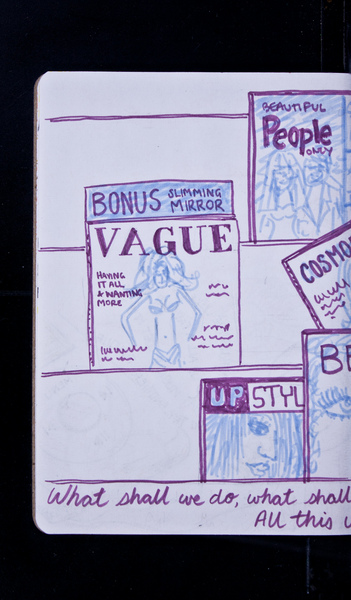 BEAUTIFUL
People
ONLY
BONUS SLIMMING
MIRROR
VAGUE
HAVING
IT ALL
& WANTING
MORE
COSMO
BE
UPSTYL
What shall we do, what shall
All this